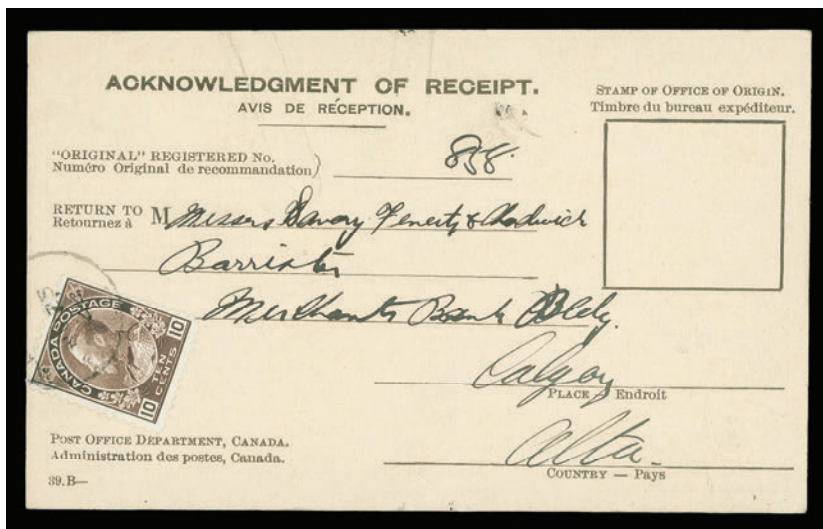 ACKNOWLEDGMENT OF RECEIPT.
AVIS DE RÉCEPTION.
STAMP OF OFFICE OF ORIGIN.
Timbre du bureau expéditeur.
"ORIGINAL" REGISTERED No.
Numéro Original de recommandation) 858.
RETURN TO
Retournez à M Messrs Savary Fenerty & Chadwick
Barrister
Merchants Bank Bldg.
Calgary
PLACE — Endroit
Alta.
COUNTRY — Pays
CANADA POSTAGE
10 TEN CENTS 10
POST OFFICE DEPARTMENT, CANADA.
Administration des postes, Canada.
39.B—